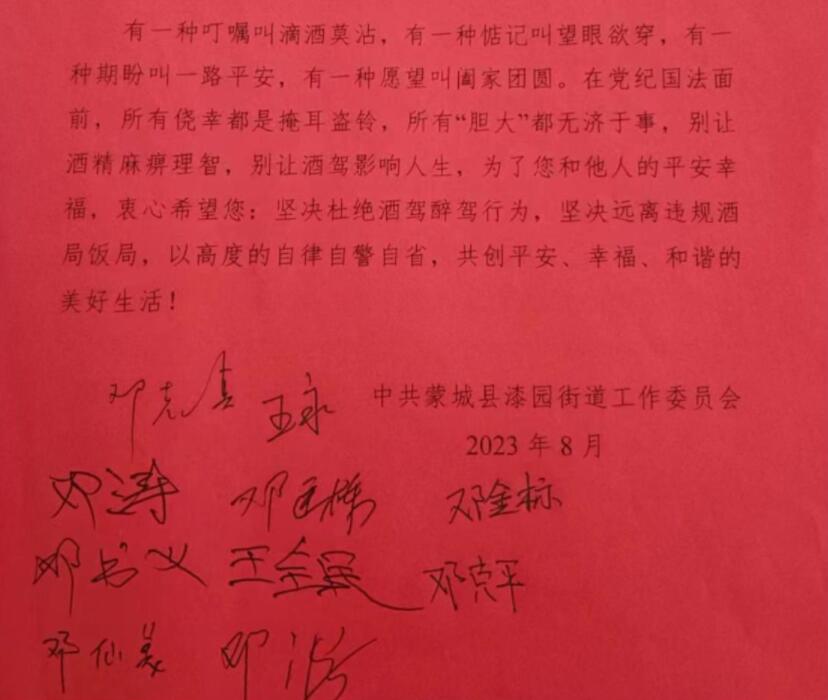 有一种叮嘱叫滴酒莫沾，有一种惦记叫望眼欲穿，有一
种期盼叫一路平安，有一种愿望叫阖家团圆。在党纪国法面
前，所有侥幸都是掩耳盗铃，所有“胆大”都无济于事，别让
酒精麻痹理智，别让酒驾影响人生，为了您和他人的平安幸
福，衷心希望您：坚决杜绝酒驾醉驾行为，坚决远离违规酒
局饭局，以高度的自律自警自省，共创平安、幸福、和谐的
美好生活！
中共蒙城县漆园街道工作委员会
2023 年 8 月
邓克真 王永
邓涛 邓金标
邓书义 王全民 邓克平
邓仙美 邓浩